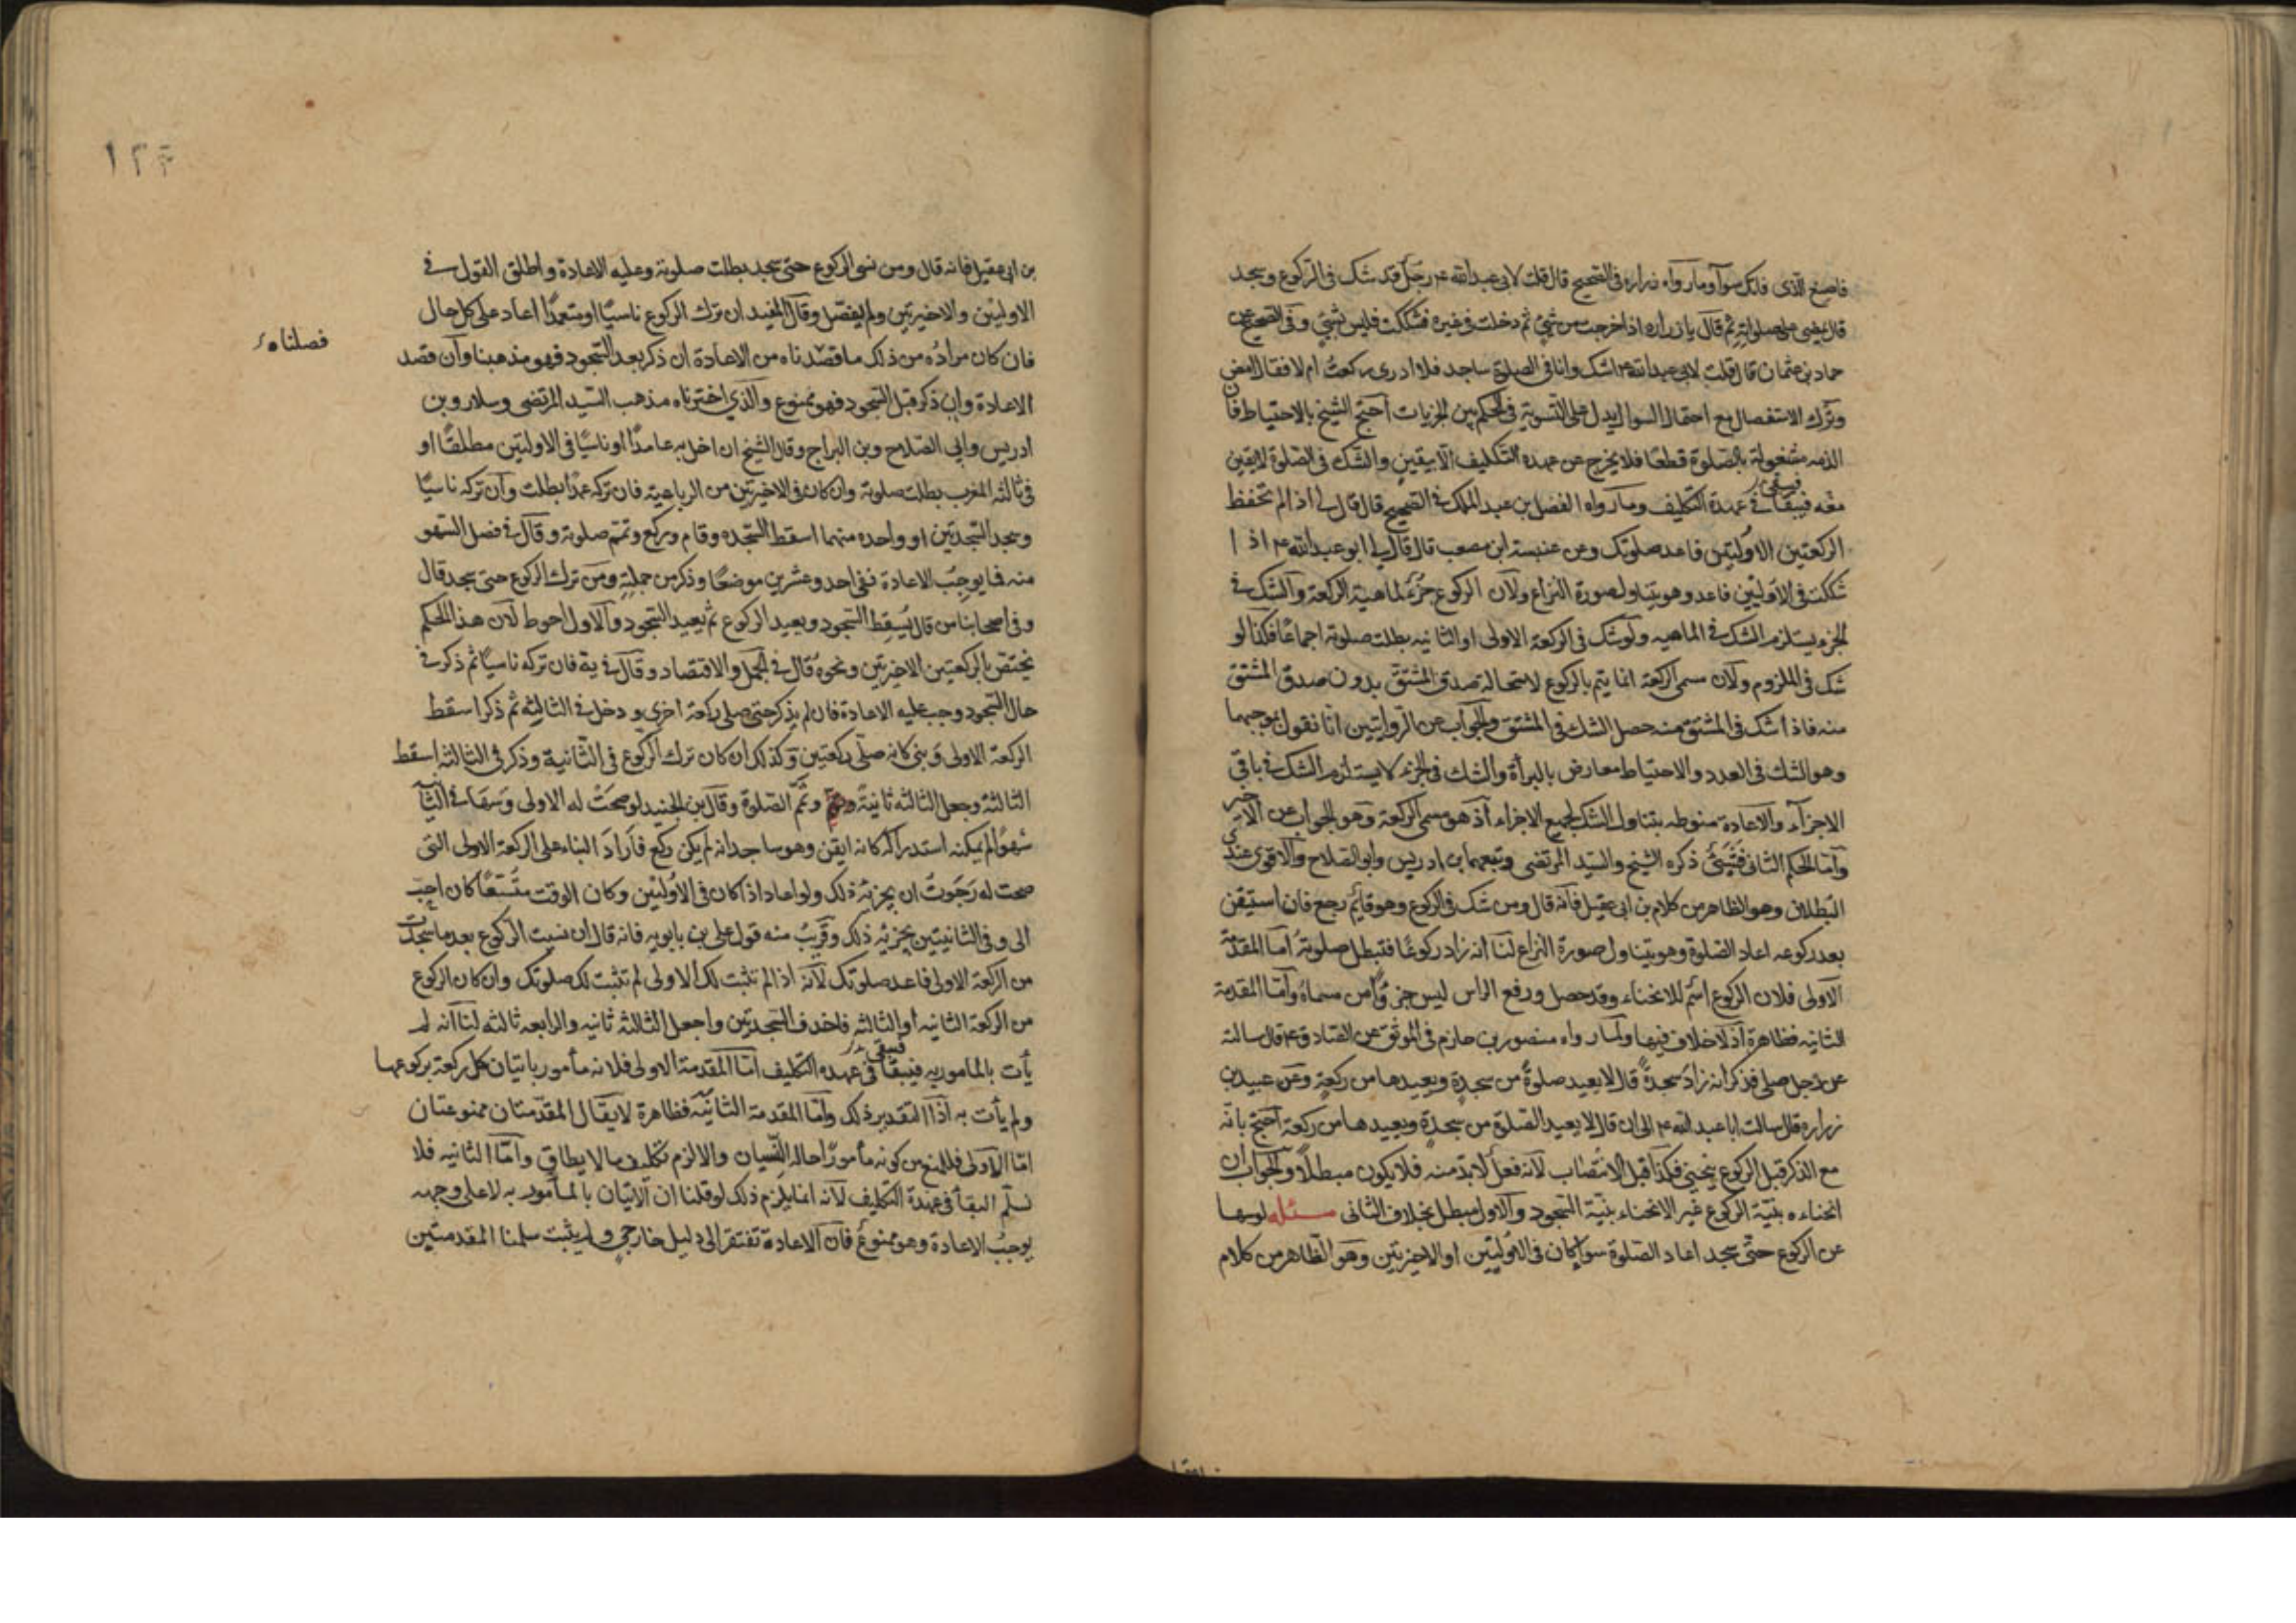 فاصنع الذى فاتك سوآ وما رواه زرارة فى الصحيح قال قلت لابى عبدالله ع رجل قد شك فى الركوع وسجد
قال يمضى على صلوته ثم قال يا زرارة اذا خرجت من شئ ثم دخلت فى غيره فشكك فليس بشئ وفى الصحيح عن
حماد بن عثمان قال قلت لابى عبدالله ع اشك وانا فى الصلوة ساجد فلا ادرى ركعت ام لا فقال امض
وترك الاستفصال مع احتمال السوال يدل على التسوية فى الحكم بين الجزيات احتج الشيخ بالاحتياط فان
الذمه مشغولة بالصلوة قطعا فلا يخرج عن عهدة التكليف الا بيقين والشك فى الصلوة لا يقين
معه فيبقا فيبقى فى عهدة التكليف وما رواه الفضل بن عبدالملك فى الصحيح قال قال لى اذا لم تحفظ
الركعتين الاوليتين فاعد صلوتك وعن عنبسة ابن مصعب قال قال لى ابو عبدالله ع اذا
شككت فى الاوليين فاعد وهو يتناول صورة النزاع ولان الركوع جزء لماهية الركعة والشك فى
الجزء يستلزم الشك فى الماهيه ولو شك فى الركعة الاولى او الثانيه بطلت صلوته اجماعا فكذا لو
شك فى الملزوم ولان مسمى الركعة انما يتم بالركوع لاستحالة صدق المشتق بدون صدق المشتق
منه فاذا شك فى المشتق منه حصل الشك فى المشتق والجواب عن الروايتين انا نقول بموجبهما
وهو الشك فى العدد والاحتياط معارض بالبرأة والشك فى الجزء لا يستلزم الشك فى باقى
الاجزآء والاعادة منوطه بتناول الشك لجميع الاجزاء اذ هو مسمى الركعة وهو الجواب عن الاخير
وأما الحكم الثانى فشئ ذكره الشيخ والسيد المرتضى وتبعهما ابن ادريس وابوالصلاح والاقوى عندى
البطلان وهو الظاهر من كلام بن ابى عقيل فانه قال ومن شك فى الركوع وهو قائم رجع فان استيقن
بعد ركوعه اعاد الصلوة وهو يتناول صورة النزاع لنا انه زاد ركوعا فتبطل صلوته اما المقدمة
الاولى فلان الركوع اسم للانحناء وقد حصل ورفع الراس ليس جزءًا من مسماه وأما المقدمة
الثانيه فظاهرة اذ لا خلاف فيها ولما رواه منصور بن حازم فى الموثق عن الصادق ع قال سالته
عن رجل صلى فذكر انه زاد سجدةً قال لا يعيد صلوةً من سجدة ويعيدها من ركعة وعن عبيد بن
زراره قال سالت ابا عبدالله ع الى ان قال لا يعيد الصلوة من سجدة ويعيدها من ركعة احتج بانه
مع الذكر قبل الركوع ينحنى فكذا قبل الانتصاب لانه فعل لا بد منه فلا يكون مبطلا والجواب ان
انحناءه بنية الركوع غير الانحناء بنية السجود والاول مبطل بخلاف الثانى مسئله لو سها
عن الركوع حتى سجد اعاد الصلوة سوا كان فى الاوليتين او الاخيرتين وهو الظاهر من كلام
١٢٣
بن ابى عقيل فانه قال ومن نسى الركوع حتى سجد بطلت صلوته وعليه الاعادة واطلق القول فى
الاوليين والاخيرتين ولم يفصل وقال المفيد ان ترك الركوع ناسيًا او متعمدًا اعاد على كل حال
فان كان مراده من ذلك ما قصدناه من الاعادة ان ذكر بعد السجود فهو مذهبنا وان قصد
فصلناه
الاعادة وان ذكر قبل السجود فهو ممنوع والذى اخترناه مذهب السيد المرتضى وسلار وبن
ادريس وابى الصلاح وبن البراج وقال الشيخ ان اخل به عامدًا او ناسيًا فى الاولتين مطلقًا او
فى ثالثه المغرب بطلت صلوته وان كان فى الاخيرتين من الرباعيه فان تركه عمدًا بطلت وان تركه ناسيًا
وسجد السجدتين او واحده منهما اسقط السجده وقام وركع وتمم صلوته وقال فى فصل السهو
منه فيما يوجب الاعادة نفى احد وعشرين موضعًا وذكر من جملته ومن ترك الركوع حتى سجد قال
وفى اصحابنا من قال يسقط السجود ويعيد الركوع ثم يعيد السجود والاول احوط لان هذا الحكم
يختص بالركعتين الاخيرتين ونحوه قال فى الجمل والاقتصاد وقال فى يه فان تركه ناسيًا ثم ذكر فى
حال السجود وجب عليه الاعادة فان لم يذكر حتى صلى ركعة اخرى ودخل فى الثالثه ثم ذكر اسقط
الركعة الاولى وبنى كانه صلى ركعتين وكذلك ان كان ترك الركوع فى الثانية وذكر فى الثالثه اسقط
الثالثة وجعل الثالثه ثانيةً وتمم الصلوة وقال بن الجنيد لو صحت له الاولى وسها فى الثانية
سهوًا لم يمكنه استدراكه كانه ايقن وهو ساجد انه لم يكن ركع فاراد البناء على الركعة الاولى التى
صحت له رجوت ان يجزئه ذلك ولو اعاد اذا كان فى الاوليين وكان الوقت متسعًا كان احب
الى وفى الثانيتين يجزيه ذلك وقريب منه قول على بن بابويه فانه قال ان نسيت الركوع بعد ما سجدت
من الركعة الاولى فاعد صلوتك لانه اذا لم تثبت لك الاولى لم تثبت لك صلوتك وان كان الركوع
من الركعة الثانيه او الثالثه فاحذف السجدتين واجعل الثالثة ثانيه والرابعه ثالثه لنا انه لم
يأت بالمامور به فيبقا فيبقى فى عهده التكليف اما المقدمة الاولى فلانه مأمور باتيان كل ركعة بركوعها
ولم يأت به اذ التقدير ذلك وأما المقدمة الثانيه فظاهرة لا يقال المقدمتان ممنوعتان
اما الاولى فللمنع من كونه مأمورًا حاله النسيان والا لزم تكليف ما لا يطاق وأما الثانيه فلا
نسلم البقأ فى عهدة التكليف لانه انما يلزم ذلك لو قلنا ان الاتيان بالمأمور به لا على وجهه
يوجب الاعادة وهو ممنوع فان الاعادة تفتقر الى دليل خارجى ولم يثبت سلمنا المقدمتين